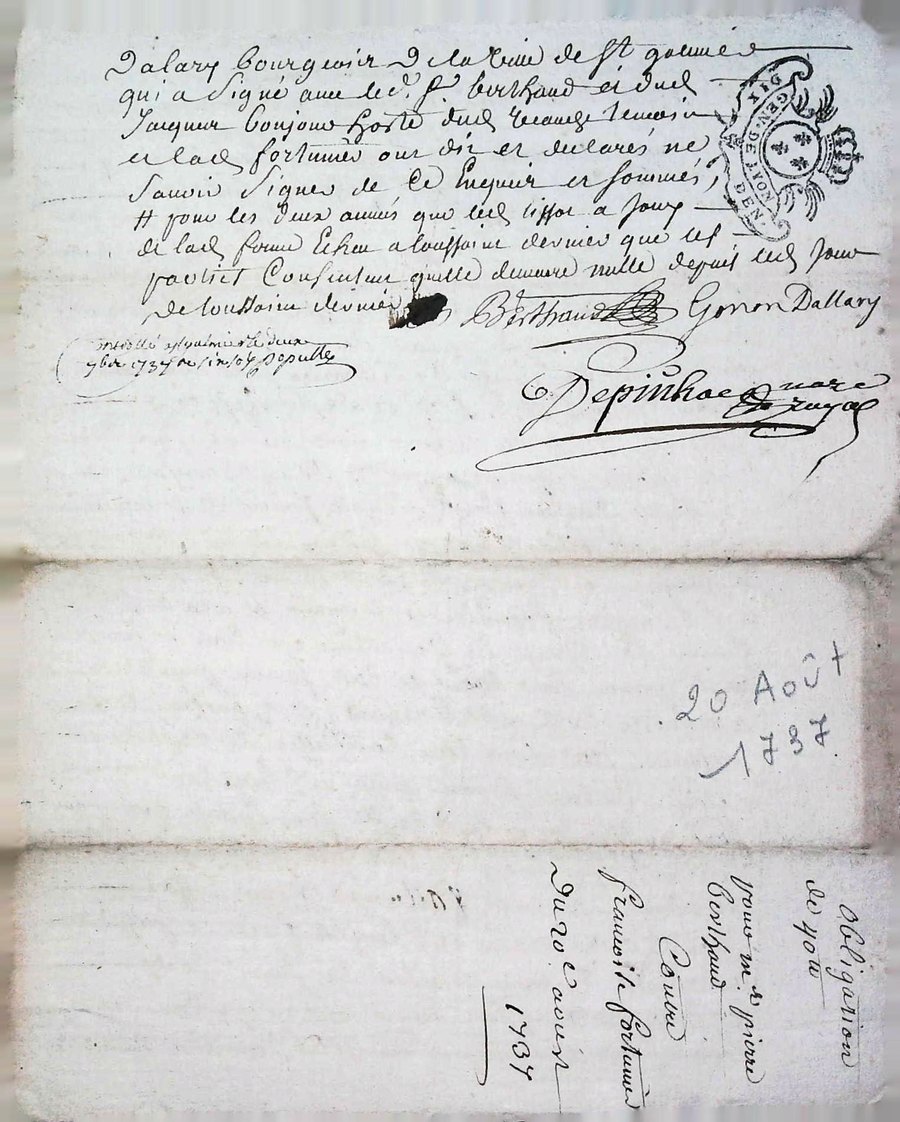 Dalary bourgeois de la ville de St galmier
qui a signé avec led. Sr berthaud et dud
Jacques bonjour hoste dud temoin
et lad fortunée ont dit et declarés ne
Savoir signer de ce Enquis et sommés
# pour les deux années que led a Jouy
de lad ferme Echue a toussaint dernier que les
parties Consentent quelle demeure nulle depuis led Jour
de toussaint dernier
Berthaud Gonon Dallary
DIX
GEN. DE LYON
DEN.
Controllé a st galmier le deux
7bre 1737
Depinhac nore
royal
20 Août
1737
Obligation
de 40 tt
pour mr pierre
berthaud
Contre
francoise fortunée
Du 20e aoust
1737